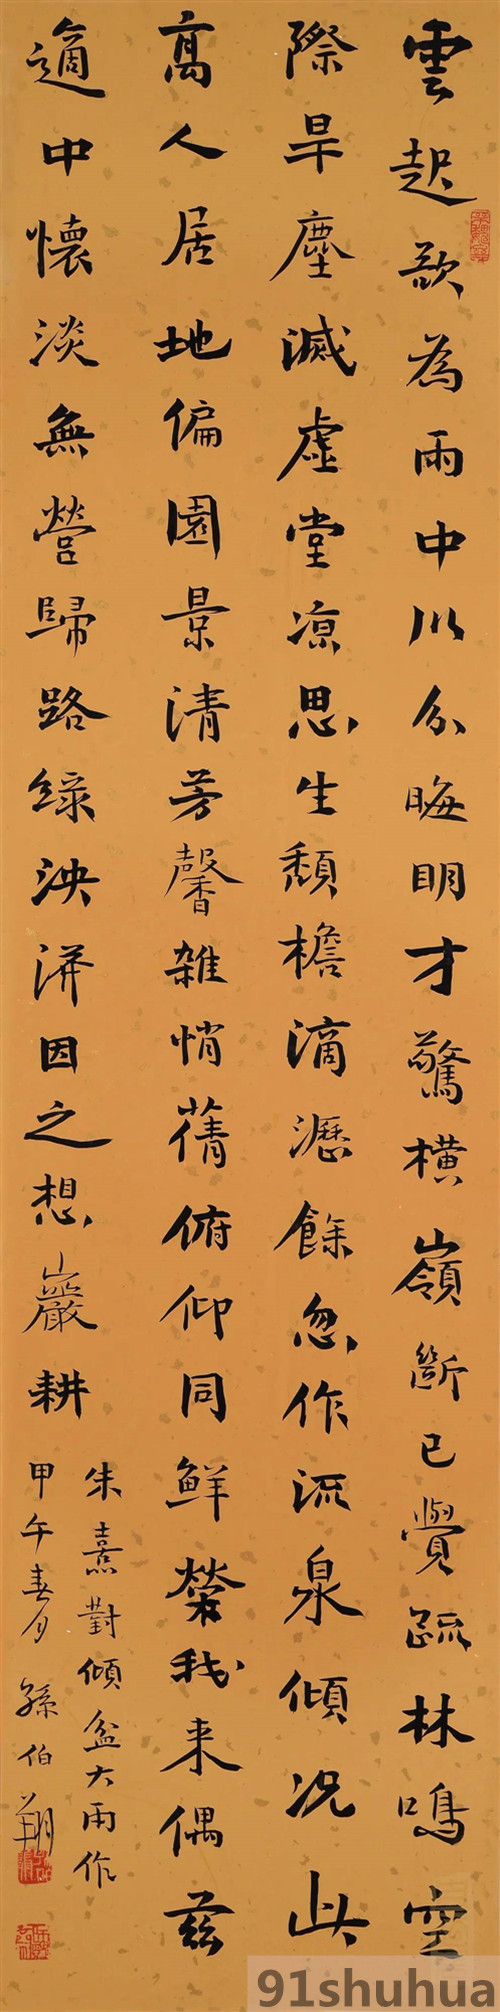 雲起欲為雨中川分晦明才驚横嶺斷已覺疏林鳴空
際旱塵滅虛堂凉思生頹檐滴瀝餘忽作流泉傾况此
高人居地偏園景清芳馨雜悄蒨俯仰同鮮榮我来偶茲
適中懷淡無營歸路緑泱漭因之想巖耕
朱熹對傾盆大雨作
甲午春月孫伯翔
91shuhua